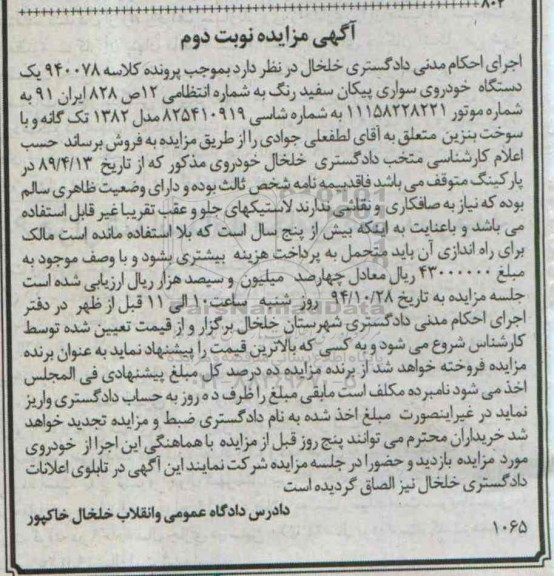 ۸۰۲
آگهی مزایده نوبت دوم
اجرای احکام مدنی دادگستری خلخال در نظر دارد بموجب پرونده کلاسه ۹۴۰۰۷۸ یک
دستگاه خودروی سواری پیکان سفید رنگ به شماره انتظامی ۱۲ص ۸۲۸ ایران ۹۱ به
شماره موتور ۱۱۱۵۸۲۲۸۲۲۱ به شماره شاسی ۸۲۵۴۱۰۹۱۹ مدل ۱۳۸۲ تک گانه و با
سوخت بنزین متعلق به آقای لطفعلی جوادی را از طریق مزایده به فروش برساند حسب
اعلام کارشناسی متخب دادگستری خلخال خودروی مذکور که از تاریخ ۸۹/۴/۱۳ در
پارکینگ متوقف می باشد فاقدبیمه نامه شخص ثالث بوده و دارای وضعیت ظاهری سالم
بوده که نیاز به صافکاری و نقاشی ندارند لاستیکهای جلو و عقب تقریبا غیر قابل استفاده
می باشد و باعنایت به اینکه بیش از پنج سال است که بلا استفاده مانده است مالک
برای راه اندازی آن باید متحمل به پرداخت هزینه بیشتری بشود و با وصف موجود به
مبلغ ۴۳۰۰۰۰۰۰ ریال معادل چهارصد میلیون و سیصد هزار ریال ارزیابی شده است
جلسه مزایده به تاریخ ۹۴/۱۰/۲۸ روز شنبه ساعت۱۰ الی ۱۱ قبل از ظهر در دفتر
اجرای احکام مدنی دادگستری شهرستان خلخال برگزار و از قیمت تعیین شده توسط
کارشناس شروع می شود و به کسی که بالاترین قیمت را پیشنهاد نماید به عنوان برنده
مزایده فروخته خواهد شد از برنده مزایده ده درصد کل مبلغ پیشنهادی فی المجلس
اخذ می شود نامبرده مکلف است مابقی مبلغ را ظرف ده روز به حساب دادگستری واریز
نماید در غیراینصورت مبلغ اخذ شده به نام دادگستری ضبط و مزایده تجدید خواهد
شد خریداران محترم می توانند پنج روز قبل از مزایده با هماهنگی این اجرا از خودروی
مورد مزایده بازدید و حضورا در جلسه مزایده شرکت نمایند این آگهی در تابلوی اعلانات
دادگستری خلخال نیز الصاق گردیده است
دادرس دادگاه عمومی وانقلاب خلخال خاکپور
۱۰۶۵